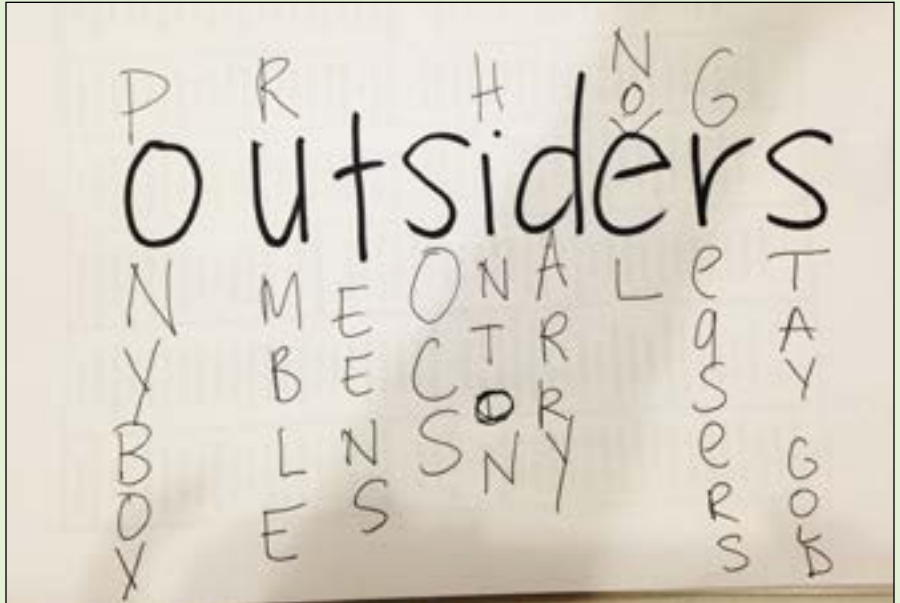 outsiders
PoNYBOY
RuMBLE
tEENS
sOCS
HiNTON
dARRY
NoVeL
GreaSeRS
sTAY GOLD